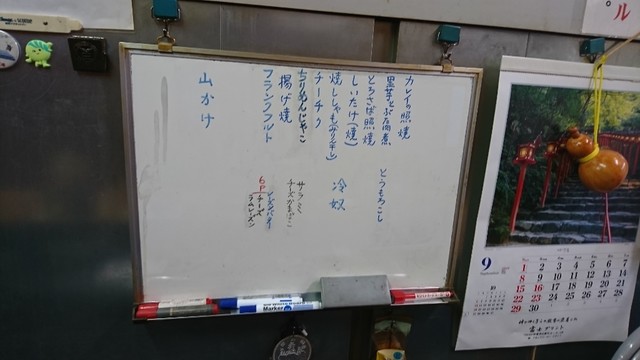 カレイの照焼
里芋とぶた肉煮
とろさば照焼
しいたけ(焼)
焼ししゃも(みりん干し)
チーチク
ちりめんじゃこ
揚げ焼
フランクフルト
山かけ
とうもろこし
冷奴
サラミ
チーズかまぼこ
6P
チーズ
レーズンバター
ラムレーズン
Marker
ル
9
1 2 3 4 5 6 7
8 9 10 11 12 13 14
15 16 17 18 19 20 21
22 23 24 25 26 27 28
29 30